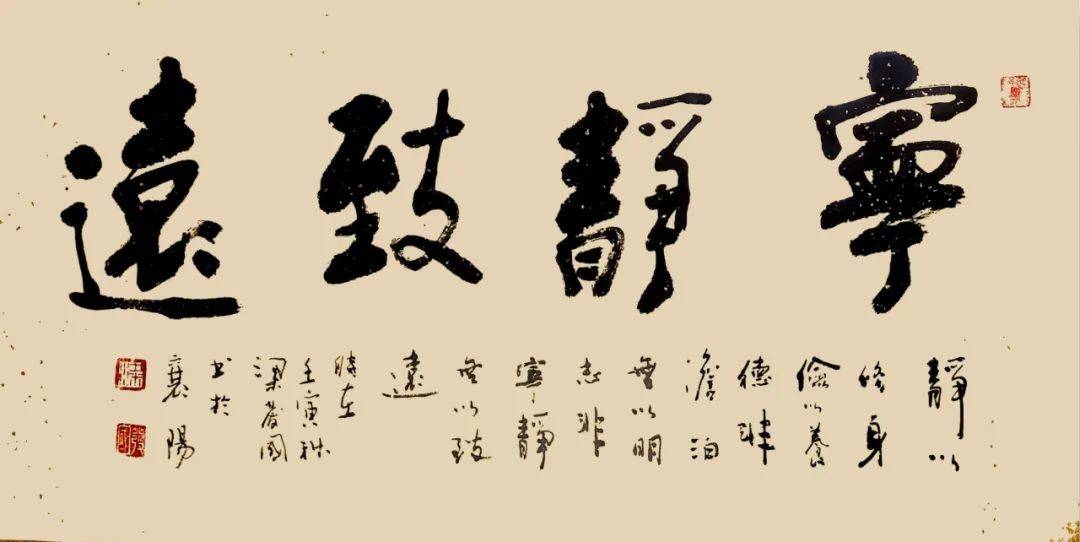 寧靜致遠
靜以
修身
儉以養
德非
澹泊
無以明
志非
寧靜
無以致
遠
時在
壬寅秋
梁發國
书於
襄陽